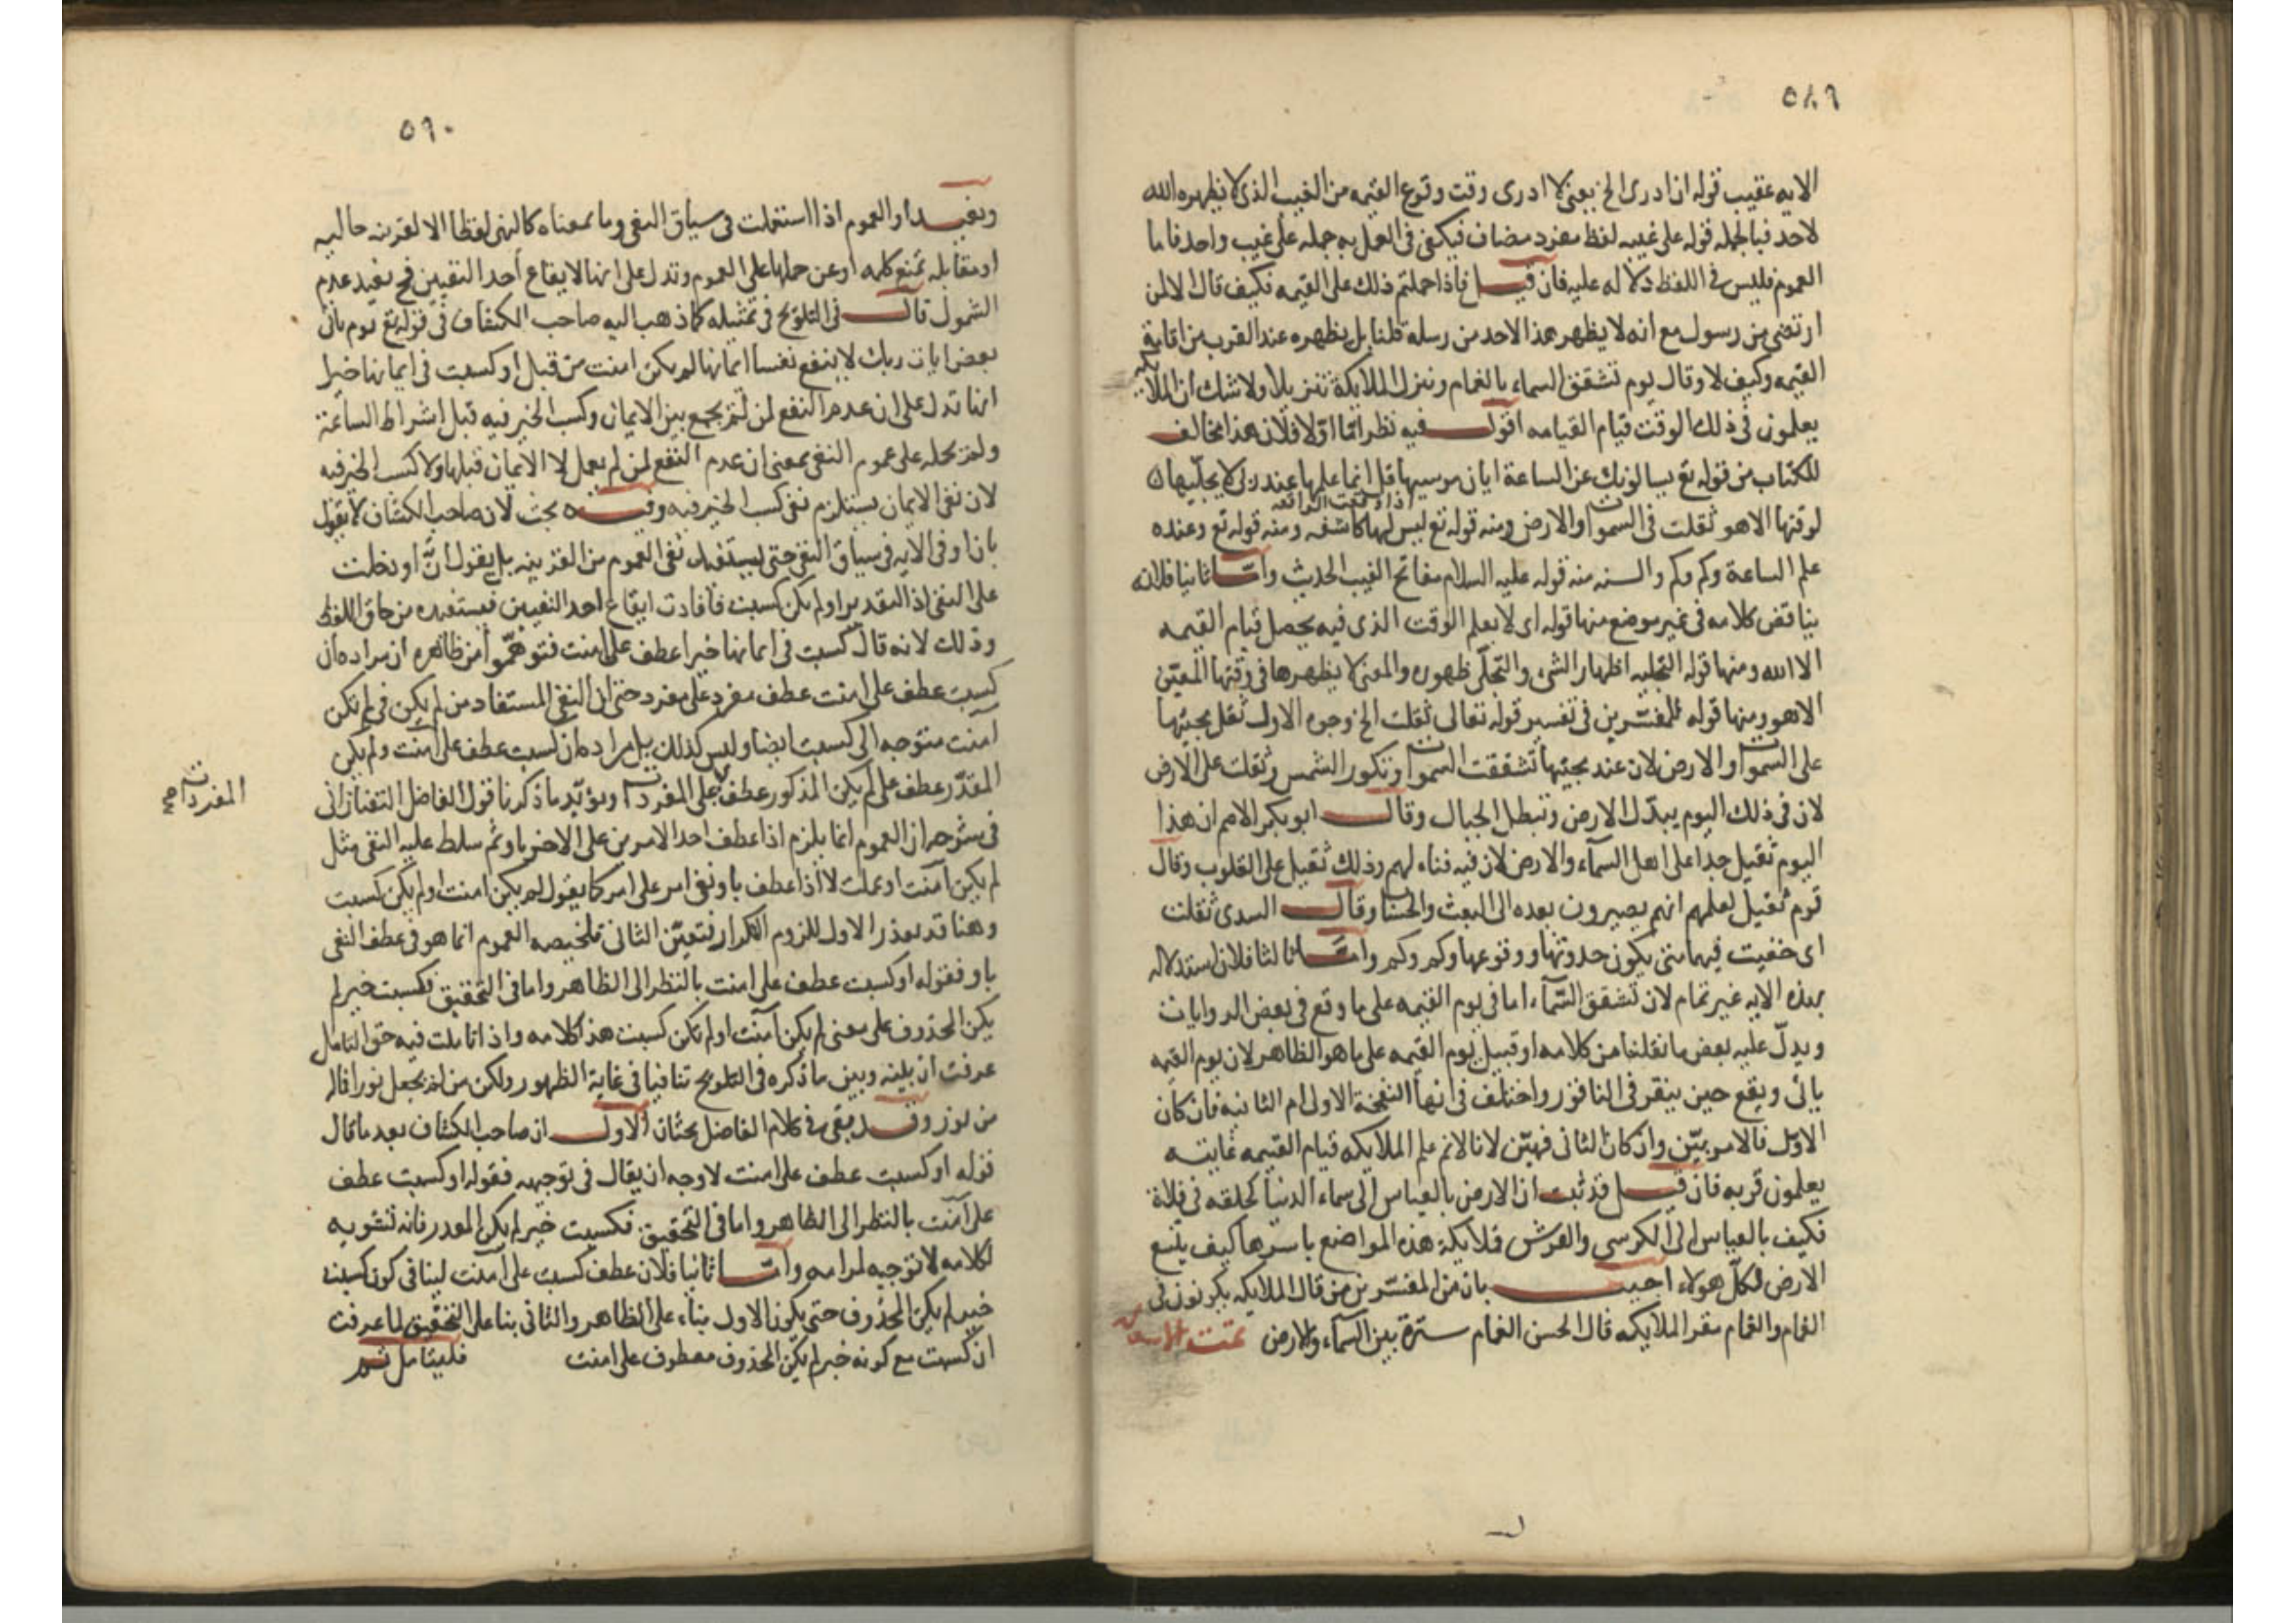 ٥٨٩
الايه عقيب قوله ان ادرى الخ بمعنى لا ادرى وقت وقوع القيمه من الغيب الذى لا يظهره الله
لاحد فبالجمله قوله على غيبه لفظ مفرد مضاف فيكفى فى العمل به جمله على غيب واحد فاما
العموم فليس فى اللفظ دلاله عليه فان قيل فاذا حملتم ذلك على القيمه فكيف قال الا لمن
ارتضى من رسول مع انه لا يظهر هذا لاحد من رسله قلنا بل يظهره عند القرب من اقامة
القيمه وكيف لا وقال يوم تشقق السماء بالغمام وننزل الملايكة تنزيلا ولا شك ان الملايكه
يعلمون فى ذلك الوقت قيام القيامه اقول فيه نظر اما اولا فلان هذا مخالف
للكتاب من قوله تع يسالونك عن الساعة ايان مرسيها قل انما علمها عند ربى لا يجليها
لوقتها الا هو ثقلت فى السموات والارض ومنه قوله تع ليس لها كاشفه ومنه قوله تع وعنده
اذا وقعت الواقعه
علم الساعة وكم وكم والسنه منه قوله عليه السلام مفاتح الغيب الحديث واما ثانيا فلانه
يناقض كلامه فى غير موضع منها قوله اى لا يعلم الوقت الذى فيه يحصل قيام القيمه
الا الله ومنها قوله التجليه اظهار الشئ والتجلّى ظهوره والمعنى لا يظهرها فى وقتها المعيّن
الا هو ومنها قوله للمفسّرين فى تفسير قوله تعالى ثقلت الخ وجوه الاول ثقل مجيئها
على السموات والارض لان عند مجيئها تشققت السموات وتكور الشمس وثقلت على الارض
لان فى ذلك اليوم يبدّل الارض وتبطل الجبال وقال ابو بكر الاصم ان هذا
اليوم ثقيل جدا على اهل السمآء والارض لان فيه فناءهم وذلك ثقيل على القلوب وقال
قوم ثقيل لعلمهم انهم يصيرون بعده الى البعث والحساب وقال السدى ثقلت
اى خفيت فيهما متى يكون حدوثها ووقوعها وكم وكم واما ثالثا فلان استدلاله
بهذه الايه غير تمام لان تشقق السّمآء اما فى يوم القيمه على ما وقع فى بعض الروايات
ويدلّ عليه بعض ما نقلنا من كلامه او قبيل يوم القيمه على ما هو الظاهر لان يوم القيمه
ياتى ويقع حين ينقر فى الناقور واختلف فى انها النفخة الاولى ام الثانيه فان كان
الاوّل فالامر بيّن وان كان الثانى فهيّن لانا لانم علم الملايكه قيام القيمه غايته
يعلمون قربه فان قيل قد ثبت ان الارض بالقياس الى سماء الدنيا كحلقه فى فلاة
فكيف بالقياس الى الكرسى والعرش فملايكة هذه المواضع باسرها كيف يتسع
الارض لكلّ هولاء اجيب بان من المفسّرين من قال الملايكه يكونون فى
الغمام والغمام مقر الملايكه قال الحسن الغمام سترة بين السمآء والارض تمت
٥٩٠
ويفيد او العموم اذا استعملت فى سياق النفى وما بمعناه كالنهى لفظا الا لقرينه حاليه
او مقابله تمنع كلمه او عن حملها على العموم وتدل على انها لايقاع أحد النفيين فح يفيد عدم
الشمول قال فى التلويح فى تمثيله كما ذهب اليه صاحب الكشاف فى قوله تع يوم ياتى
بعض ايات ربك لا ينفع نفسا ايمانها لم يكن امنت من قبل او كسبت فى ايمانها خيرا
انها تدل على ان عدم النفع لمن لم يجمع بين الايمان وكسب الخير فيه قبل اشراط الساعة
ولم يحمله على عموم النفى بمعنى ان عدم النفع لمن لم يعمل لا الايمان قبلها ولا كسب الخير فيه
لان نفى الايمان يستلزم نفى كسب الخير فيه وفيه بحث لان صاحب الكشاف لا يقول
بان او فى الايه فى سياق النفى حتى يستفيد نفى العموم من القرينه بل يقول انّ او دخلت
على النفى اذ التقدير او لم يكن كسبت فافادت ايقاع احد النفيين فيستفيده من حاق اللفظ
وذلك لانه قال كسبت فى ايمانها خيرا عطف على امنت فتوهّموا من ظاهره ان مراده ان
كسبت عطف على امنت عطف مفرد على مفرد حتى ان النفى المستفاد من لم يكن فى لم تكن
آمنت متوجه الى كسبت ايضا وليس كذلك بل مراده ان كسبت عطف على آمنت ولم يكن
المقدّر عطف على لم يكن المذكور عطف لا على المفردات ويؤيّد ما ذكرنا قول الفاضل التفتازانى
المفردات صح
فى شرحه ان العموم انما يلزم اذا عطف احد الامرين على الاخر باو ثم سلط عليه النفى مثل
لم يكن آمنت او عملت لا اذا عطف باو نفى امر على امر كما يقول لم يكن امنت او لم يكن كسبت
وهنا قد تعذر الاول للزوم التكرار فتعيّن الثانى تلخيصه العموم انما هو فى عطف النفى
باو فقوله او كسبت عطف على امنت بالنظر الى الظاهر واما فى التحقيق فكسبت خبر لم
يكن المحذوف على معنى لم يكن آمنت او لم تكن كسبت هذا كلامه واذا تاملت فيه حق التامل
عرفت ان بينه وبين ما ذكره فى التلويح تنافيا فى غاية الظهور ولكن من لم يجعل نورا فماله
من نور وقد بقى فى كلام الفاضل بحثان الاول ان صاحب الكشاف بعد ما قال
قوله او كسبت عطف على امنت لا وجه ان يقال فى توجيهه فقوله او كسبت عطف
على آمنت بالنظر الى الظاهر واما فى التحقيق فكسبت خبر لم يكن المقدر فانه تشويه
لكلامه لا توجيه لمرامه واما ثانيا فلان عطف كسبت على آمنت لا ينافى كون كسبت
خبر لم يكن المحذوف حتى يكون الاول بناء على الظاهر والثانى بناء على التحقيق لما عرفت
ان كسبت مع كونه خبر لم يكن المحذوف معطوف على امنت فليتامل